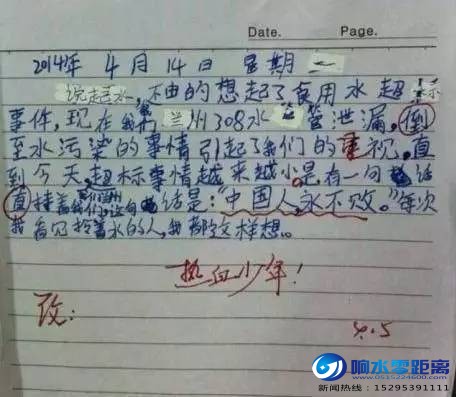 Date. Page.
2014年 4月 14日 星期一
说起水,不由的想起了食用水超标
事件,现在我们兰州308水管泄漏,倒
至水污染的事情引起了我们的重视,直
到今天,超标事情越来越小是有一句话
直挂着我们,这句话是:“中国人,永不败。”每次
我看见抢着水的人,我都这样想。
热血少年!
改:
4.5
响水零距离
@0515224600.com
新闻热线:15295391111